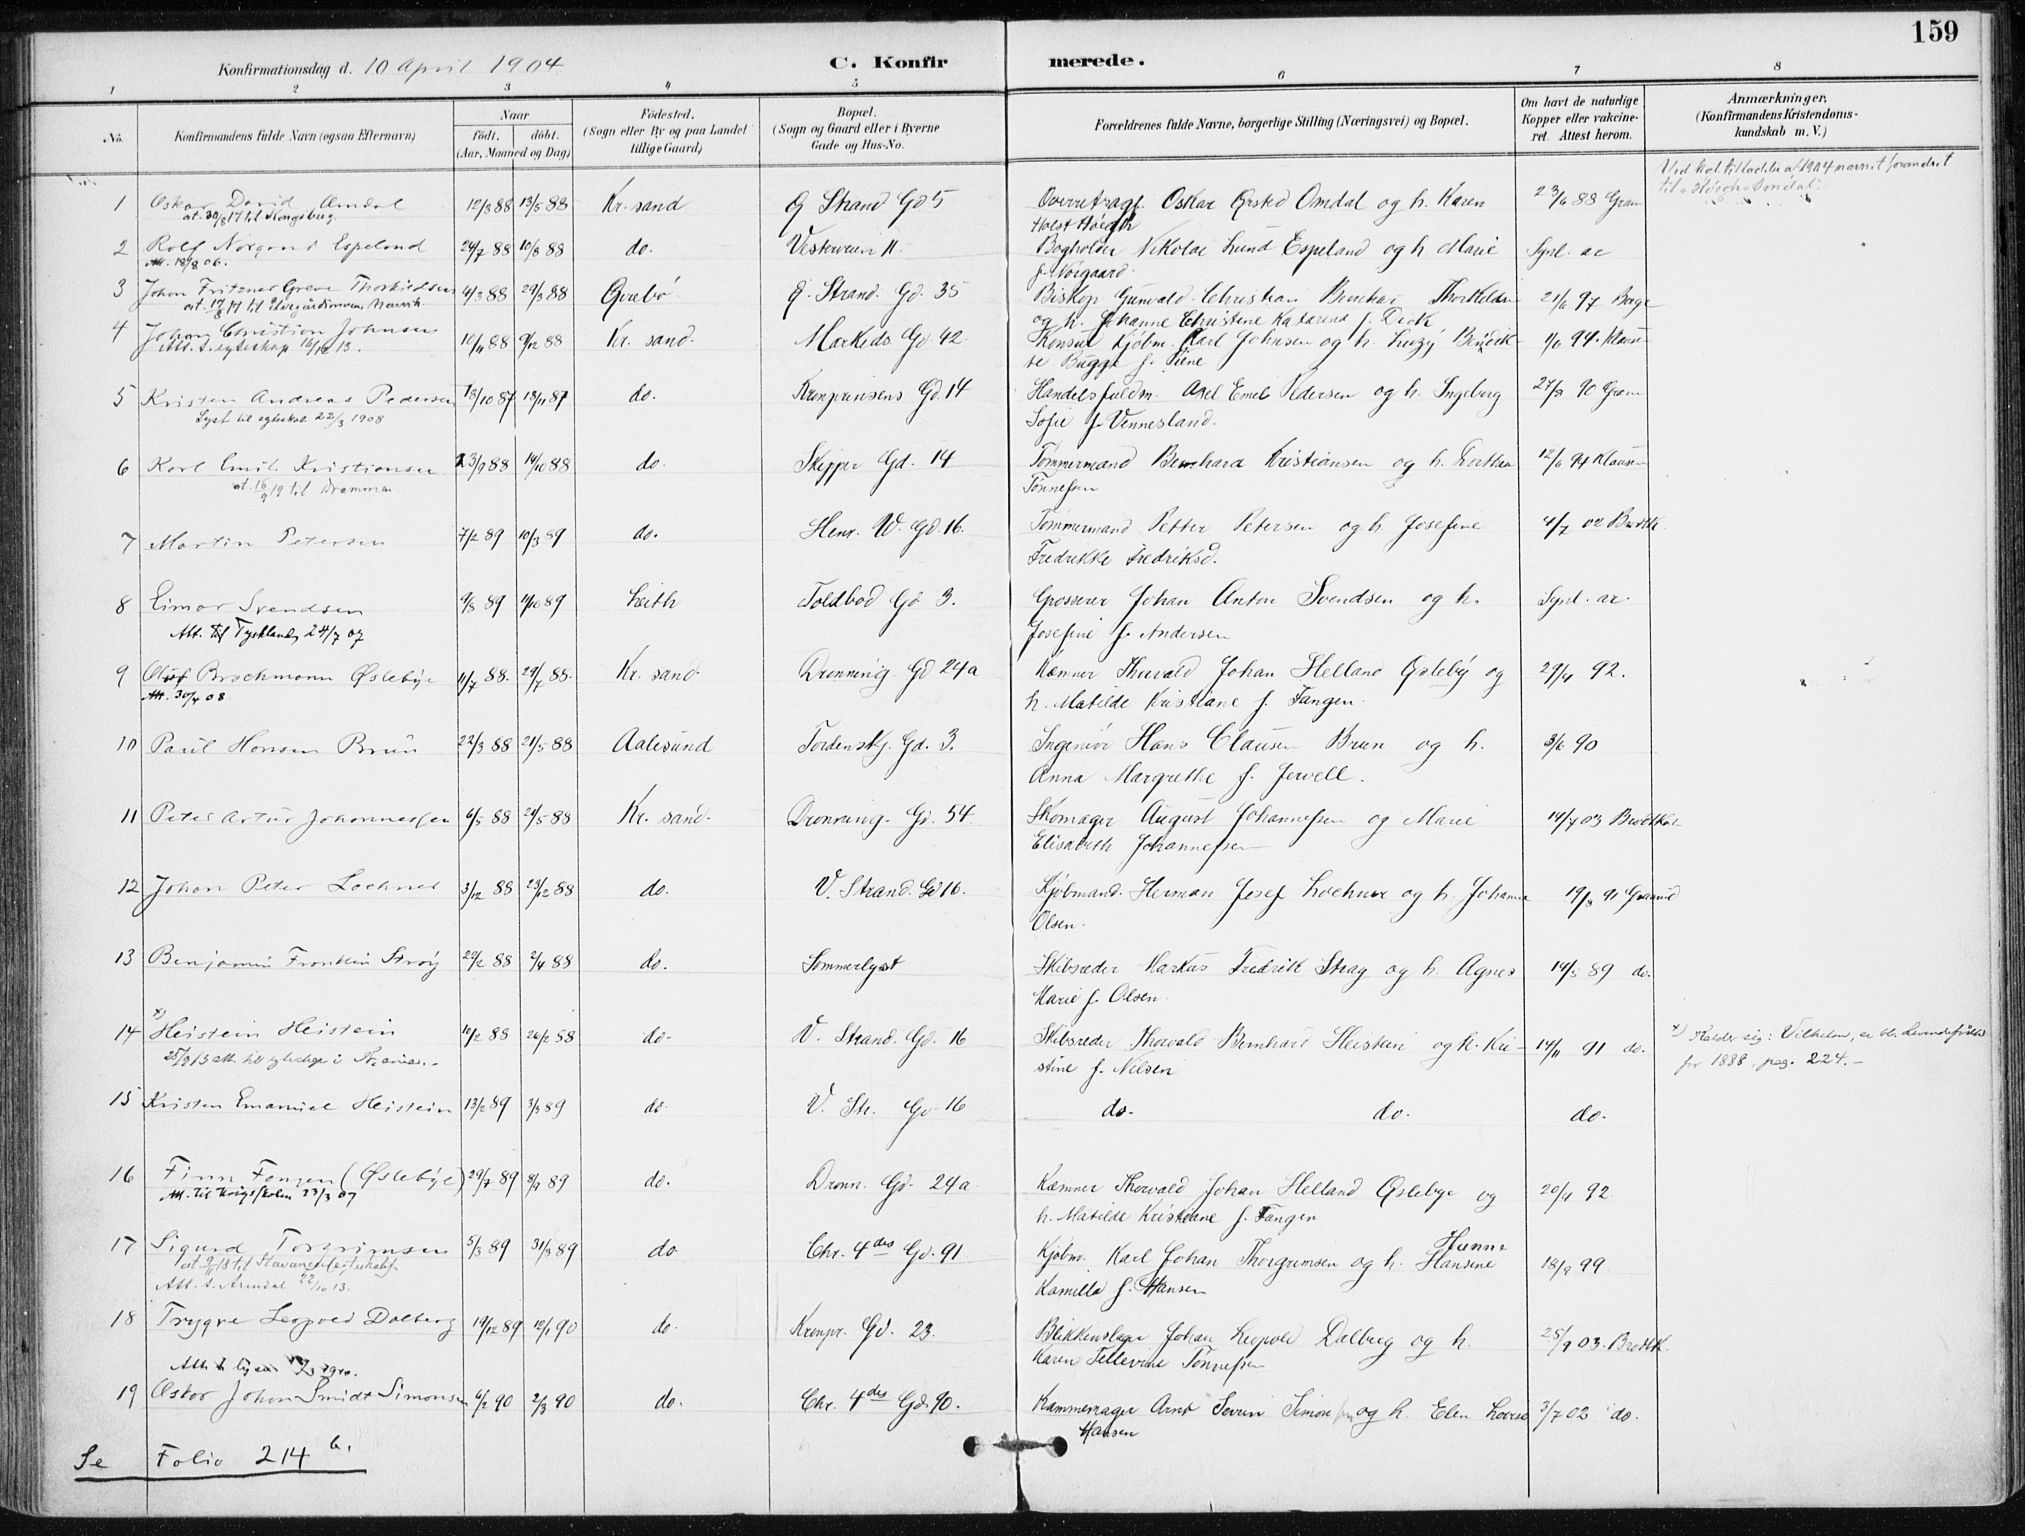 159
Konfirmationsdag d. 10 April 1904.
C. Konfirmerede.
1 2 3 4 5 6 7 8
No. Konfirmandens fulde Navn (ogsaa Efternavn) Naar født. døbt. (Aar, Maaned og Dag) Fødested. (Sogn eller By og paa Landet tillige Gaard) Bopæl. (Sogn og Gaard eller i Byerne Gade og Hus-No. Forældrenes fulde Navne, borgerlige Stilling (Næringsvei) og Bopæl. Om havt de naturlige Kopper eller vakcineret. Attest herom. Anmærkninger. (Konfirmandens Kristendomskundskab m. V.)
1 Oskar David Omdal 12/3 88 13/5 88 Kr. sand Ø Strand Gd 5 Overretssagf. Oskar Ørsted Omdal og h. Karen 23/6 88 Gram
at. 30/8 17 til Kongsberg Holst Høegh
2 Rolf Norgard Espeland 24/7 88 10/8 88 do. Vesterveien 11. Bogholder Nikolai Lund Espeland og h Marie Synl. ar
Att. 18/8 06. f. Norgaard
3 Johan Fritzner Greve Thorkildsen 4/3 88 29/3 88 Gvebø Ø. Strand. Gd. 35 Biskop Gunvald Christian Bernhard Thorkildsen 21/6 97 Borge
og h. Johanne Christine Katarina f. Dick
4 Johan Christian Johnsen 10/11 88 9/12 88 Kr. sand. Markeds Gd. 42 Konsul Kjøbm. Karl Johnsen og h. 1/6 94. Klaus
Att. t. egteskap 13. Bugge f.
5 Kristen Andreas Pedersen 18/10 87 18/11 87 do. Kronprinsens Gd. 14 Handelsfuldm. Axel Emil Pedersen og h. Ingeborg 27/8 90 Gram
Lyst til egteskab 22/3 1908 Sofie f Vennesland.
6 Karl Emil Kristiansen 23/9 88 14/10 88 do. Skipper Gd. 14 Tømmermand Bernhard Kristiansen og h. 12/6 94 Klausen
at. 16/9 19 til Drammen Tønnesen
7 Martin Petersen 7/2 89 10/3 89 do. Henr. W. Gd. 16. Tømmermand Petter Petersen og h. Josefine 4/7 02 Brodtk.
Fredrikke Fredriksd.
8 Einar Svendsen 9/8 89 11/10 89 Leith Toldbod Gd 3. Grosserer Johan Anton Svendsen og h. Synl. ar.
Att. til Tyskland 24/7 07 Josefine f. Andersen
9 Oluf Brochmann Øslebye 11/7 88. 29/7 88. Kr. sand. Dronning. Gd 24a Kæmner Thorvald Johan Helland Øsleby og 29/4 92.
Att. 30/4 08. h. Matilde Kristiane f. Fangen.
10 Paul Hansen Brun 22/3 88 21/5 88 Aalesund Tordenskj. Gd. 3. Ingeniør Hans Clausen Brun og h. 3/6 90
Anna Margrethe f. Jervell.
11 Peter Artur Johannessen 6/5 88 21/5 88 Kr. sand. Dronning. Gd. 54 Skomager August Johannessen og Marie 14/7 03 Brodtkor
Elisabeth Johannessen
12 Johan Peter Lochner 3/12 88 23/12 88 do. V. Strand. Gd 16. Kjøbmand. Herman Josef Lochner og h. Johanne 19/8 91 Gramd
Olsen.
13 Benjamin Franklin Stray 22/2 88 2/4 88 do. Sommerlyst Skibsreder Markus Fredrik Stray og h. Agnes 14/5 89 do.
Marie f. Olsen.
14 x) Heistein Heistein 10/2 88 26/2 88 do. V. Strand. Gd. 16 Skibsreder Thorvald Bernhard Heistein og h. Kri- 14/11 91 do.
25/9 13 att. til i stine f. Nilsen
15 Kristen Emanuel Heistein 13/2 89 3/3 89 do. V. Str. Gd. 16 do. do. do.
16 Finn Fangen (Øslebye) 29/7 89 8/9 89 do. Dronn. Gd. 24a Kæmner Thorvald Johan Helland Øslebye og 20/4 92
Att. til Krigsskolen 23/3 07 h. Matilde Kristiane f. Fangen
17 Sigurd Torgrimsen 5/3 89 31/3 89 do. Chr. 4des Gd. 91 Kjøbm. Karl Johan Thorgrimsen og h. Hanna Hansine 18/9 99
Kamilla f. Hansen
Att. t. Arendal 22/10 13.
18 Trygve Leopold Dalberg 19/12 89 12/1 90 do. Kronpr. Gd. 23. Blikkenslager Johan Leopold Dalberg og h. 25/9 03. Brodtk.
Karen Tellevine Tønnessen
19 Oskar Johan Smidt Simonsen 4/2 90 2/3 90 do. Chr. 4des Gd. 90. Kammemager Arnt Severin Simonsen og h. Elen Lovise 3/7 02 do.
Hansen
Ved kgl. tilladelse af 1904 navnet forandret
til Høegh-Omdal.
x) Kalder sig: Vilhelm, se bl. Levendefødte
for 1888, pag. 224.–
Se Folio 214 b.